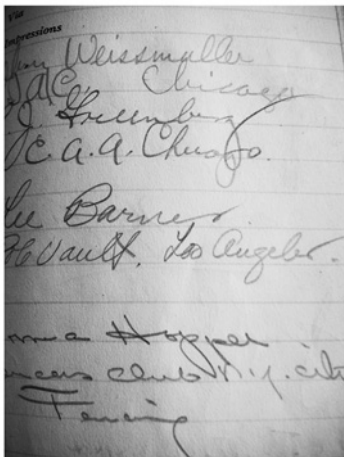 Impressions
Weissmuller
Chicago
J Greenberg
C. A. A. Chicago.
Lee Barnes
Vault, Los Angeles.
Hopper
club N.Y. city
Fencing